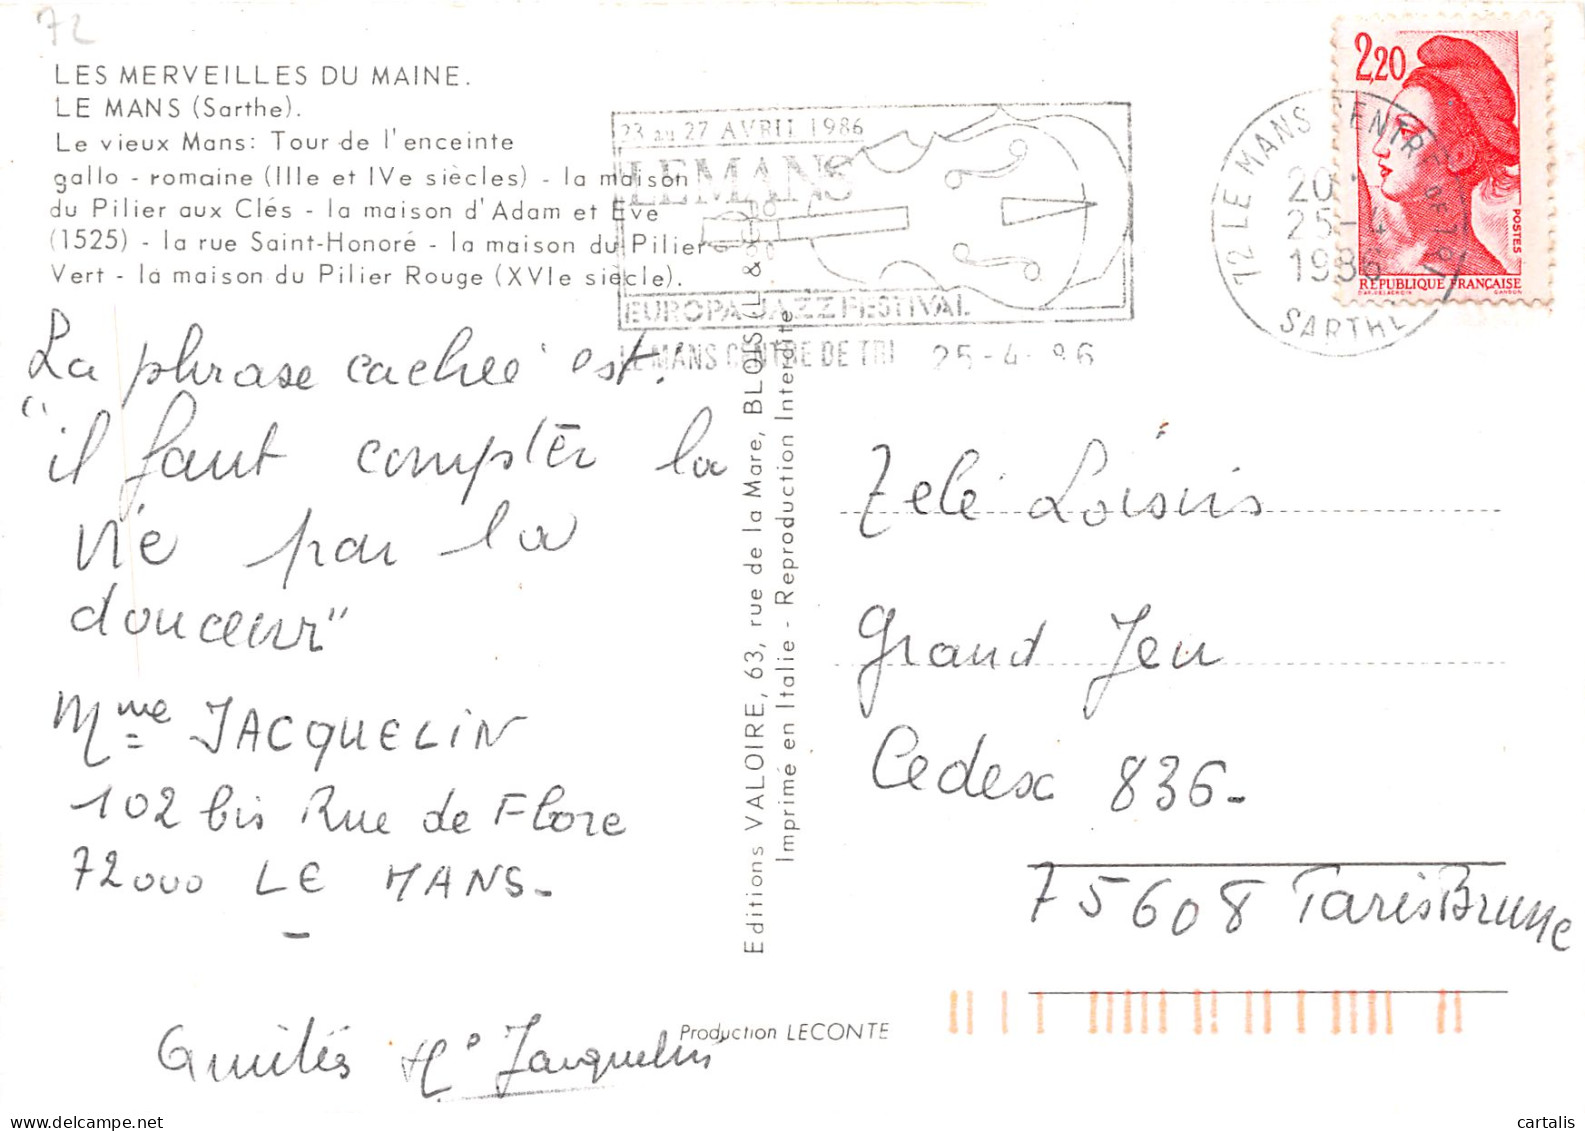 72
LES MERVEILLES DU MAINE.
LE MANS (Sarthe).
Le vieux Mans: Tour de l'enceinte
gallo - romaine (IIIe et IVe siècles) - la maison
du Pilier aux Clés - la maison d'Adam et Eve
(1525) - la rue Saint-Honoré - la maison du Pilier
Vert - la maison du Pilier Rouge (XVIe siècle).
23 au 27 AVRIL 1986
LE MANS
EUROPA JAZZ FESTIVAL
LE MANS CENTRE DE TRI 25-4-86
72 LE MANS CENTRE DE TRI
20
25-4
1986
SARTHE
2,20
POSTES
RÉPUBLIQUE FRANÇAISE
La phrase cachée est:
"il faut compter la
vie par la
douceur"
Mme JACQUELIN
102 bis Rue de Flore
72000 LE MANS-
Amitiés
Jacquelin
Editions VALOIRE, 63, rue de la Mare, BLOIS (L. &
Imprimé en Italie - Reproduction Interdite
Production LECONTE
Télé Loisirs
Grand Jeu
Cedex 836-
75608 Paris Brune
cartalis